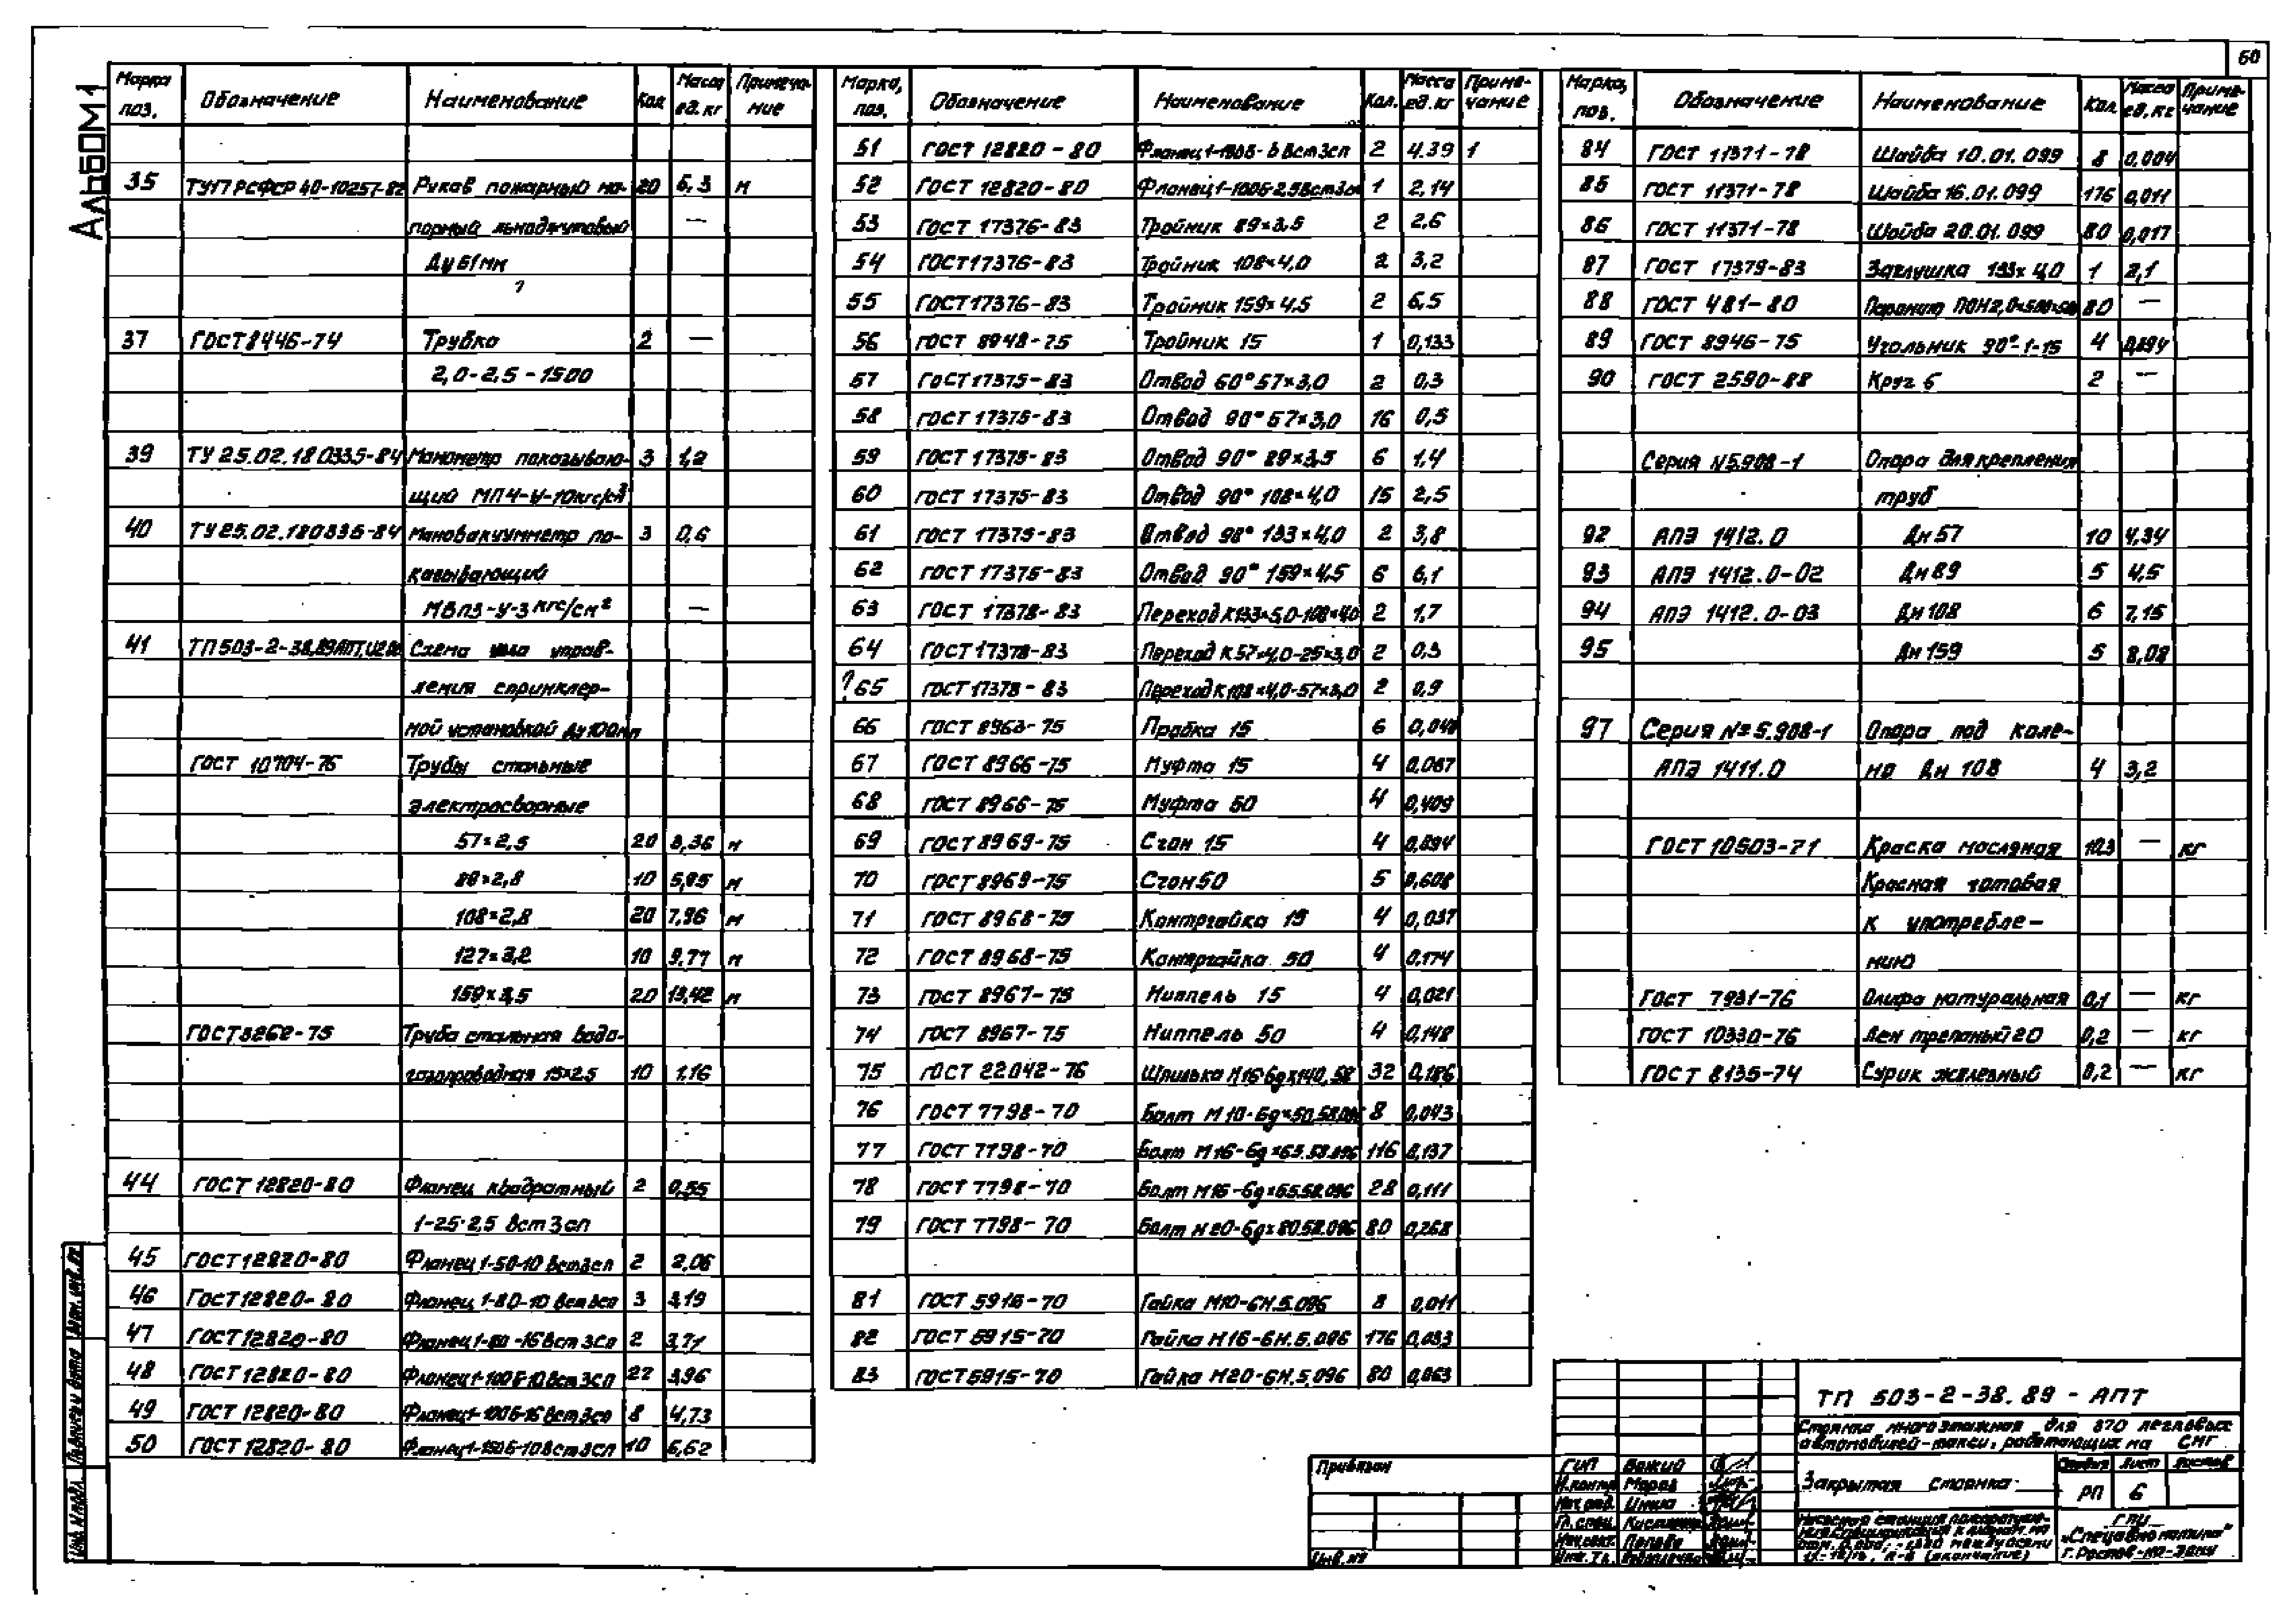 60
Альбом 1
Марка поз. Обозначение Наименование Кол Масса ед. кг Примечание
35 ТУ17 РСФСР 40-10257-82 Рукав пожарный на- 20 6,3 м
порный льноджутовый —
Ду 61мм
37 ГОСТ 8446-74 Трубка 2 —
2,0-2,5-1500
39 ТУ 25.02.180335-84 Манометр показываю- 3 1,2
щий МП4-У-10кгс/см²
40 ТУ 25.02.180335-84 Мановакуумметр по- 3 0,6
казывающий
МВП3-У-3 кгс/см² —
41 ТП 503-2-38.89 Схема узла управ-
ления спринклер-
ной установкой Ду100мм
ГОСТ 10704-76 Трубы стальные
электросварные
57×2,5 20 3,36 м
89×2,8 10 5,95 м
108×2,8 20 7,26 м
127×3,2 10 9,77 м
159×3,5 20 13,42 м
ГОСТ 3262-75 Труба стальная водо-
газопроводная 15×2,5 10 1,16
44 ГОСТ 12820-80 Фланец квадратный 2 0,55
1-25-2,5 Вст3сп
45 ГОСТ 12820-80 Фланец 1-50-10 Вст3сп 2 2,06
46 ГОСТ 12820-80 Фланец 1-80-10 Вст3сп 3 3,19
47 ГОСТ 12820-80 Фланец 1-80-16 Вст3сп 2 3,71
48 ГОСТ 12820-80 Фланец 1-100Б-10 Вст3сп 22 3,96
49 ГОСТ 12820-80 Фланец 1-100Б-16 Вст3сп 8 4,73
50 ГОСТ 12820-80 Фланец 1-150Б-10 Вст3сп 10 6,62
Марка, поз. Обозначение Наименование Кол. Масса ед. кг Приме-чание
51 ГОСТ 12820-80 Фланец 1-150Б-6 Вст3сп 2 4.39 1
52 ГОСТ 12820-80 Фланец 1-100Б-2,5 Вст3сп 1 2,14
53 ГОСТ 17376-83 Тройник 89×3,5 2 2,6
54 ГОСТ 17376-83 Тройник 108×4,0 2 3,2
55 ГОСТ 17376-83 Тройник 159×4,5 2 6,5
56 ГОСТ 8948-75 Тройник 15 1 0,133
57 ГОСТ 17375-83 Отвод 60° 57×3,0 2 0,3
58 ГОСТ 17375-83 Отвод 90° 57×3,0 16 0,5
59 ГОСТ 17375-83 Отвод 90° 89×3,5 6 1,4
60 ГОСТ 17375-83 Отвод 90° 108×4,0 15 2,5
61 ГОСТ 17375-83 Отвод 90° 133×4,0 2 3,8
62 ГОСТ 17375-83 Отвод 90° 159×4,5 6 6,1
63 ГОСТ 17378-83 Переход К133×5,0-108×4,0 2 1,7
64 ГОСТ 17378-83 Переход К57×4,0-25×3,0 2 0,3
65 ГОСТ 17378-83 Переход К108×4,0-57×3,0 2 0,9
66 ГОСТ 8963-75 Пробка 15 6 0,040
67 ГОСТ 8966-75 Муфта 15 4 0,067
68 ГОСТ 8966-75 Муфта 50 4 0,409
69 ГОСТ 8969-75 Сгон 15 4 0,094
70 ГОСТ 8969-75 Сгон 50 5 0,608
71 ГОСТ 8968-75 Контргайка 15 4 0,037
72 ГОСТ 8968-75 Контргайка 50 4 0,174
73 ГОСТ 8967-75 Ниппель 15 4 0,021
74 ГОСТ 8967-75 Ниппель 50 4 0,148
75 ГОСТ 22042-76 Шпилька М16-6g×140.58 32 0,186
76 ГОСТ 7798-70 Болт М10-6g×50.58.096 8 0,043
77 ГОСТ 7798-70 Болт М16-6g×65.58.096 116 0,137
78 ГОСТ 7798-70 Болт М16-6g×65.58.096 28 0,111
79 ГОСТ 7798-70 Болт М20-6g×80.58.096 80 0,268
81 ГОСТ 5916-70 Гайка М10-6Н.5.096 8 0,011
82 ГОСТ 5915-70 Гайка М16-6Н.5.096 176 0,033
83 ГОСТ 5915-70 Гайка М20-6Н.5.096 80 0,063
Марка, поз. Обозначение Наименование Кол. Масса ед. кг Приме-чание
84 ГОСТ 11371-78 Шайба 10.01.099 8 0,004
85 ГОСТ 11371-78 Шайба 16.01.099 176 0,011
86 ГОСТ 11371-78 Шайба 20.01.099 80 0,017
87 ГОСТ 17379-83 Заглушка 133×4,0 1 2,1
88 ГОСТ 481-80 Паронит ПОН2,0×500×500 80 —
89 ГОСТ 8946-75 Угольник 90°-1-15 4 0,094
90 ГОСТ 2590-88 Круг 6 2 —
Серия №5.908-1 Опора для крепления
труб
92 АПЭ 1412.0 Дн 57 10 4,34
93 АПЭ 1412.0-02 Дн 89 5 4,5
94 АПЭ 1412.0-03 Дн 108 6 7,15
95 Дн 159 5 8,08
97 Серия №5.908-1 Опора под коле-
АПЭ 1411.0 но Дн 108 4 3,2
ГОСТ 10503-71 Краска масляная 10,3 — кг
Красная готовая
к употребле-
нию
ГОСТ 7931-76 Олифа натуральная 0,1 — кг
ГОСТ 10330-76 Лен трепаный 20 0,2 — кг
ГОСТ 8135-74 Сурик железный 0,2 — кг
ТП 503-2-38.89 - АПТ
Стоянка многоэтажная для 870 легковых
автомобилей-такси, работающих на СНГ
Закрытая стоянка
Стадия Лист Листов
РП 6
Насосная станция пожаротуше-
ния. Спецификация к планам на
(окончание)
ГПИ
„Спецавтоматика"
г. Ростов-на-Дону
Привязан
Инв. №
ГИП Божий
Н.контр Мороз
Нач.отд.
Гл. спец.
Инв. № подл. Подпись и дата Взам. инв. №